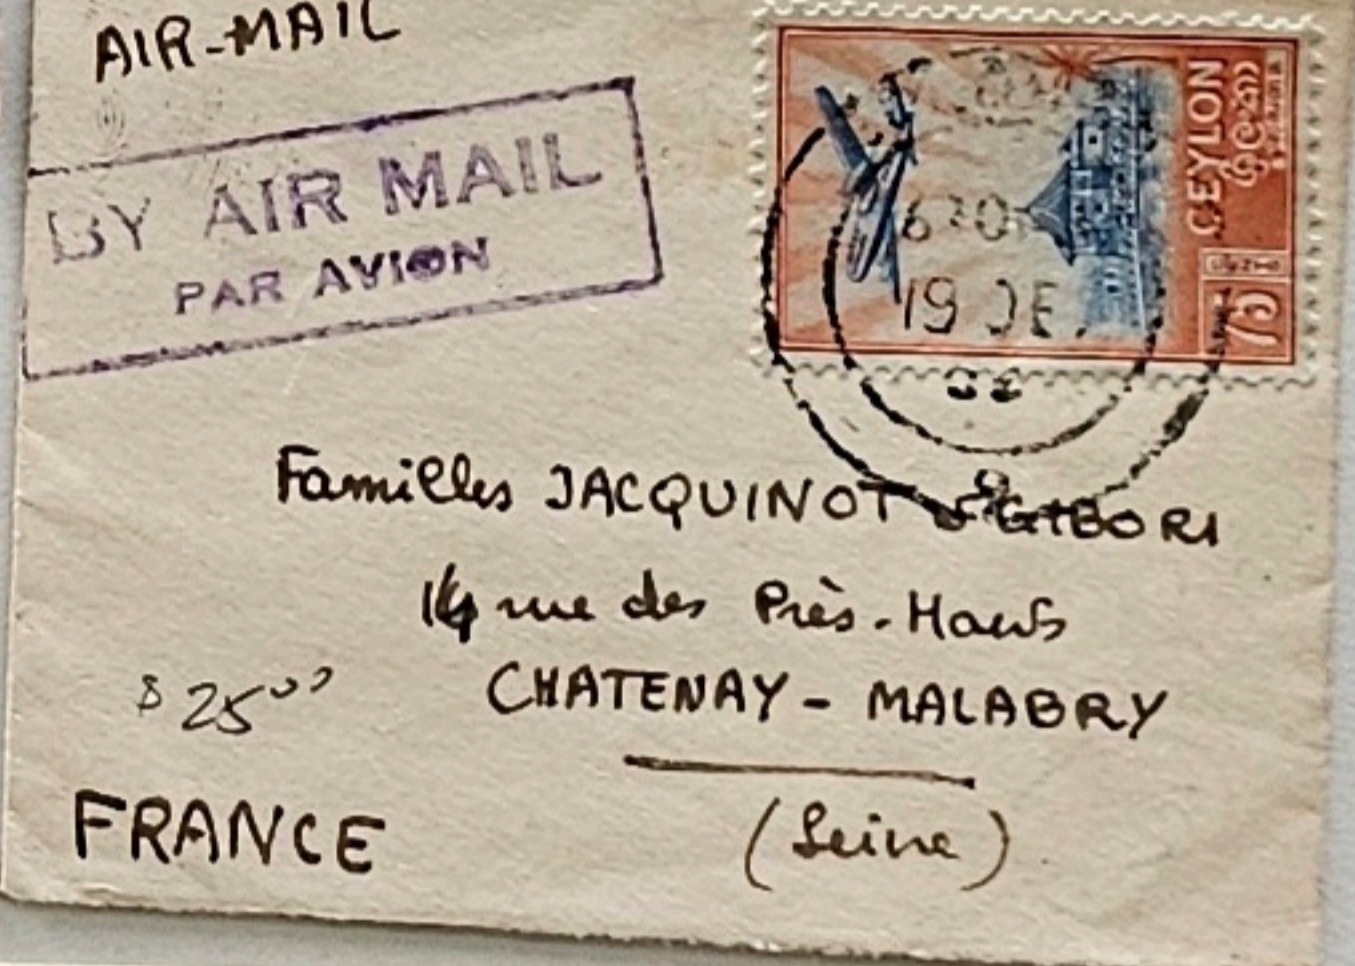 AIR-MAIL
BY AIR MAIL
PAR AVION
CEYLON
ලංකා
75
630
19 DE
Familles JACQUINOT & GIBORI
14 rue des Près-Hauts
CHATENAY - MALABRY
(Seine)
$ 25⁰⁰
FRANCE